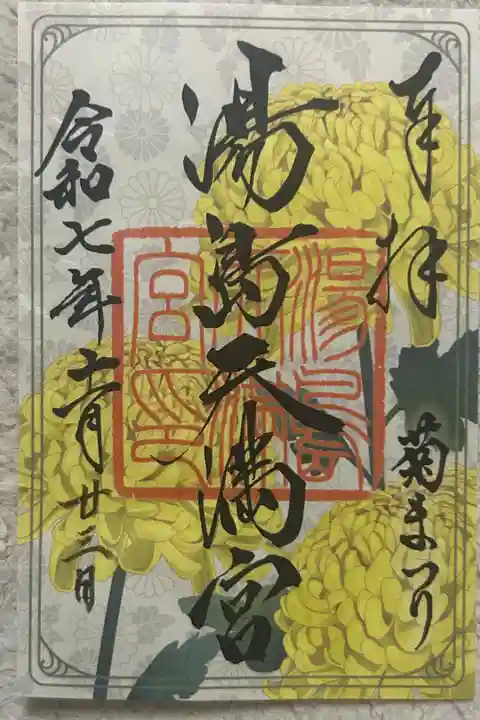 奉拝
菊まつり
湯島天満宮
令和七年十一月廿三日
湯島天満宮之印